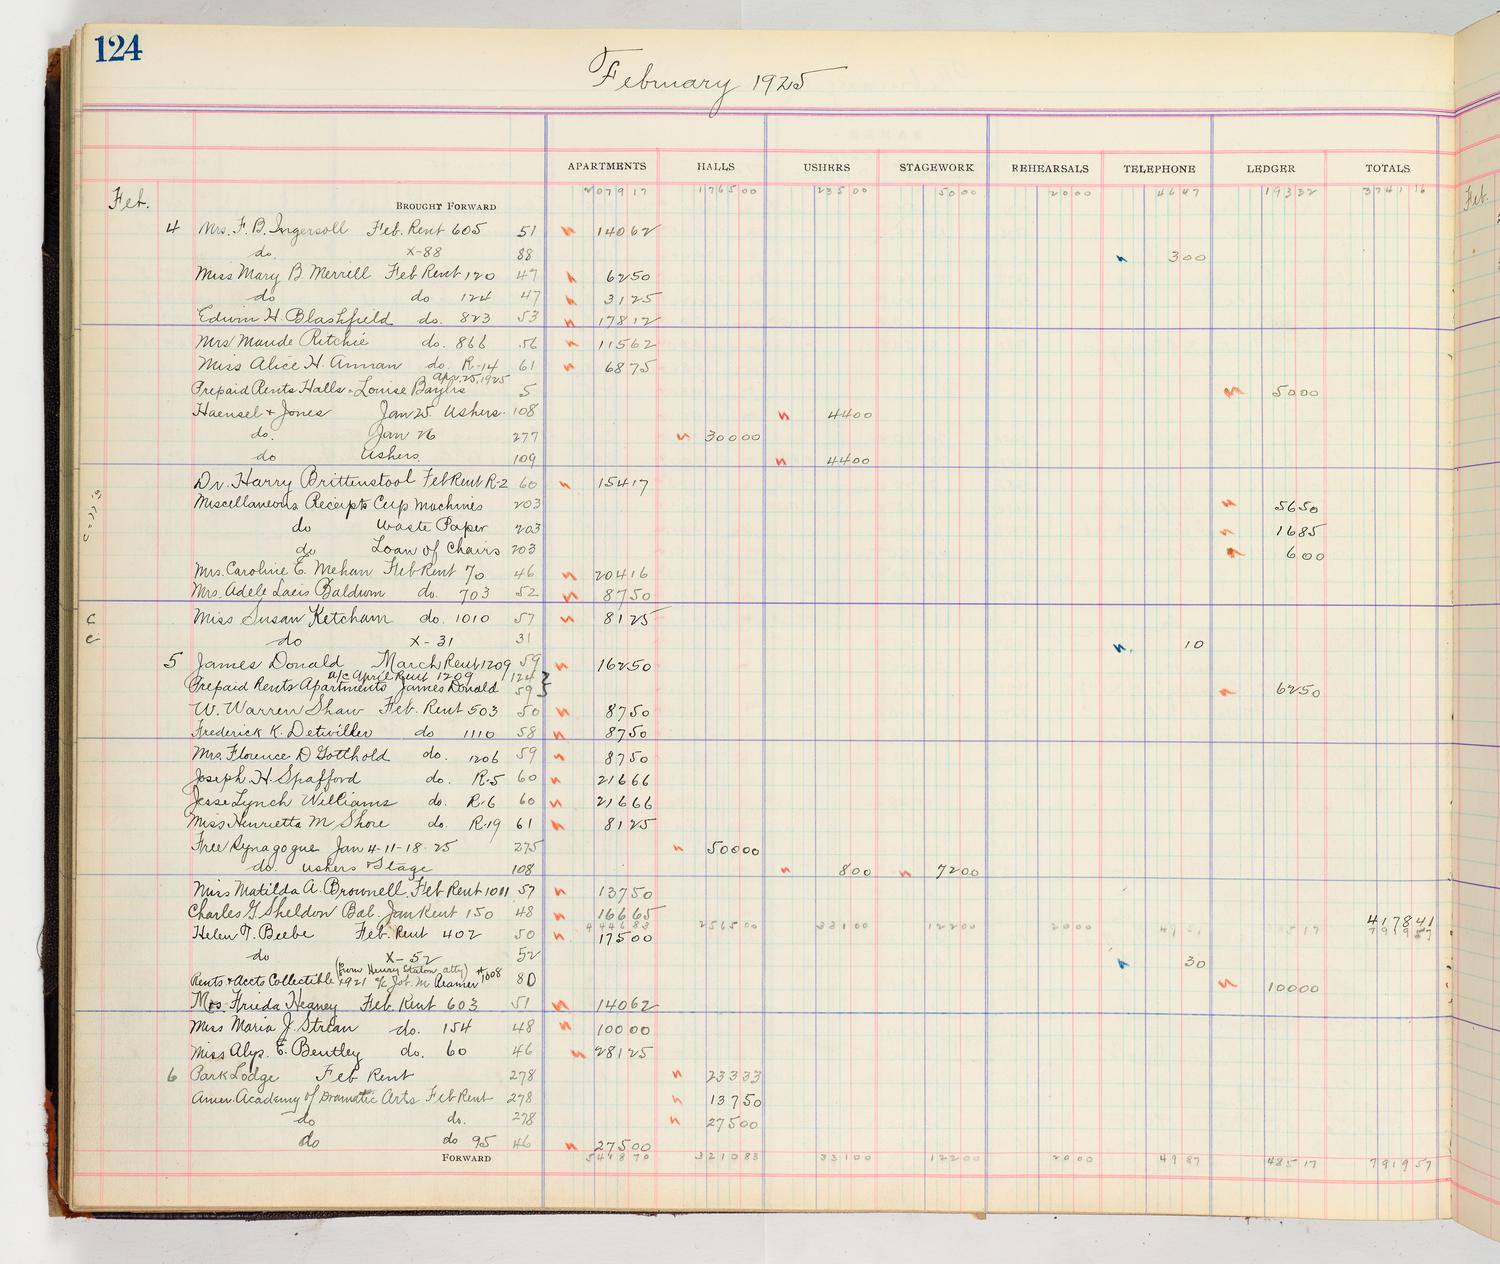 124
February 1925
APARTMENTS HALLS USHERS STAGEWORK REHEARSALS TELEPHONE LEDGER TOTALS
Feb. BROUGHT FORWARD 207917 176500 23500 5000 2000 4647 19332 3741 16
4 Mrs. F. B. Ingersoll Feb. Rent 605 51 14062
do. X-88 88 300
Miss Mary B Merrill Feb Rent 120 47 6250
do do 124 47 3125
Edwin H. Blashfield do. 823 53 17812
Mrs Maude Ritchie do. 866 56 11562
Miss Alice H. Annan do. R-14 61 6875
Apr. 25, 1925
Prepaid Rents Halls - Louise Baylis 5 5000
Haensel & Jones Jan 25 Ushers. 108 4400
do. Jan 26 277 30000
do Ushers. 109 4400
Dr. Harry Brittenstool Feb Rent R-2 60 15417
Miscellaneous Receipts Cup Machines 203 5650
do Waste Paper 203 1685
do Loan of Chairs 203 600
Mrs. Caroline E. Mehan Feb Rent 70 46 20416
Mrs. Adele Laeis Baldwin do. 703 52 8750
Miss Susan Ketcham do. 1010 57 8125
do X-31 31 10
5 James Donald March Rent 1209 59 16250
a/c April Rent 1209 124
Prepaid Rents Apartments James Donald 59 6250
W. Warren Shaw Feb. Rent 503 50 8750
Frederick K. Detwiller do 1110 58 8750
Mrs. Florence D Gotthold do. 1206 59 8750
Joseph H. Spafford do. R-5 60 21666
Jesse Lynch Williams do. R-6 60 21666
Miss Henrietta M Shore do. R-19 61 8125
Free Synagogue Jan 4-11-18-25 275 50000
do. ushers & Stage 108 800 7200
Miss Matilda A. Brownell Feb Rent 1011 57 13750
Charles G. Sheldon Bal. Jan Rent 150 48 16665
444683 256500 33100 12200 2000 417841
Helen T. Beebe Feb. Rent 402 50 17500
do X-52 52 30
(from Henry Staton atty) #1008
Rents & Accts Collectible 1921 a/c Jos. M Kramer 80 10000
Mrs. Frieda Heaney Feb. Rent 603 51 14062
Miss Maria J. Strean do. 154 48 10000
Miss Alys. E. Bentley do. 60 46 28125
6 Park Lodge Feb Rent 278 23333
Amer. Academy of Dramatic Arts Feb Rent 278 13750
do do. 278 27500
do do 95 46 27500
FORWARD 541870 321083 33100 12200 2000 4987 48517 791957
Feb.